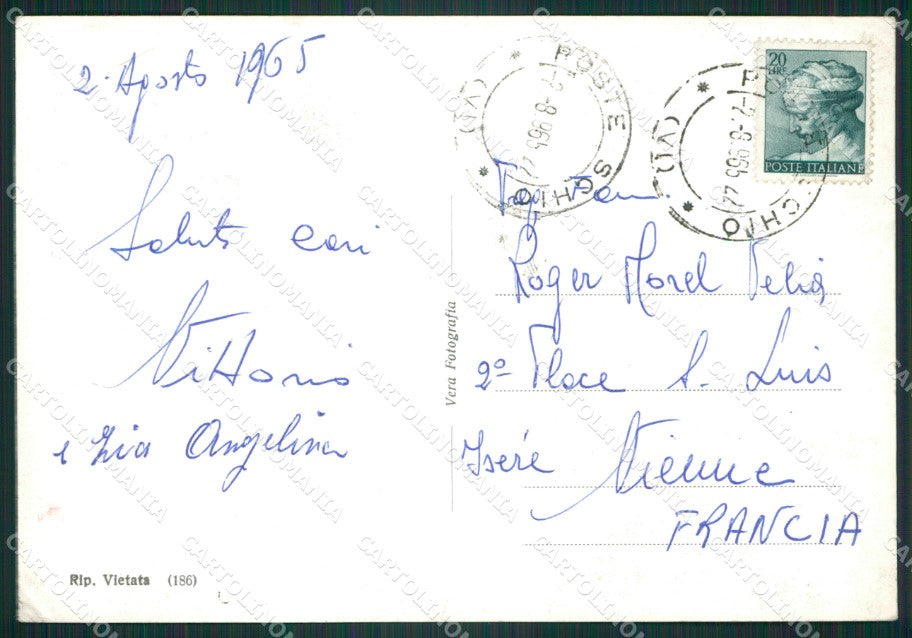 2 Agosto 1965
Saluti cari
Vittorio
e Zia Angelina
Rip. Vietata (186)
Vera Fotografia
POSTE
SCHIO
(VI)
POSTE
SCHIO
(VI)
20
LIRE
POSTE ITALIANE
Fam.
Roger Morel Velia
2º Place S. Luis
Iseré Vienne
FRANCIA
CARTOLINOMANIA